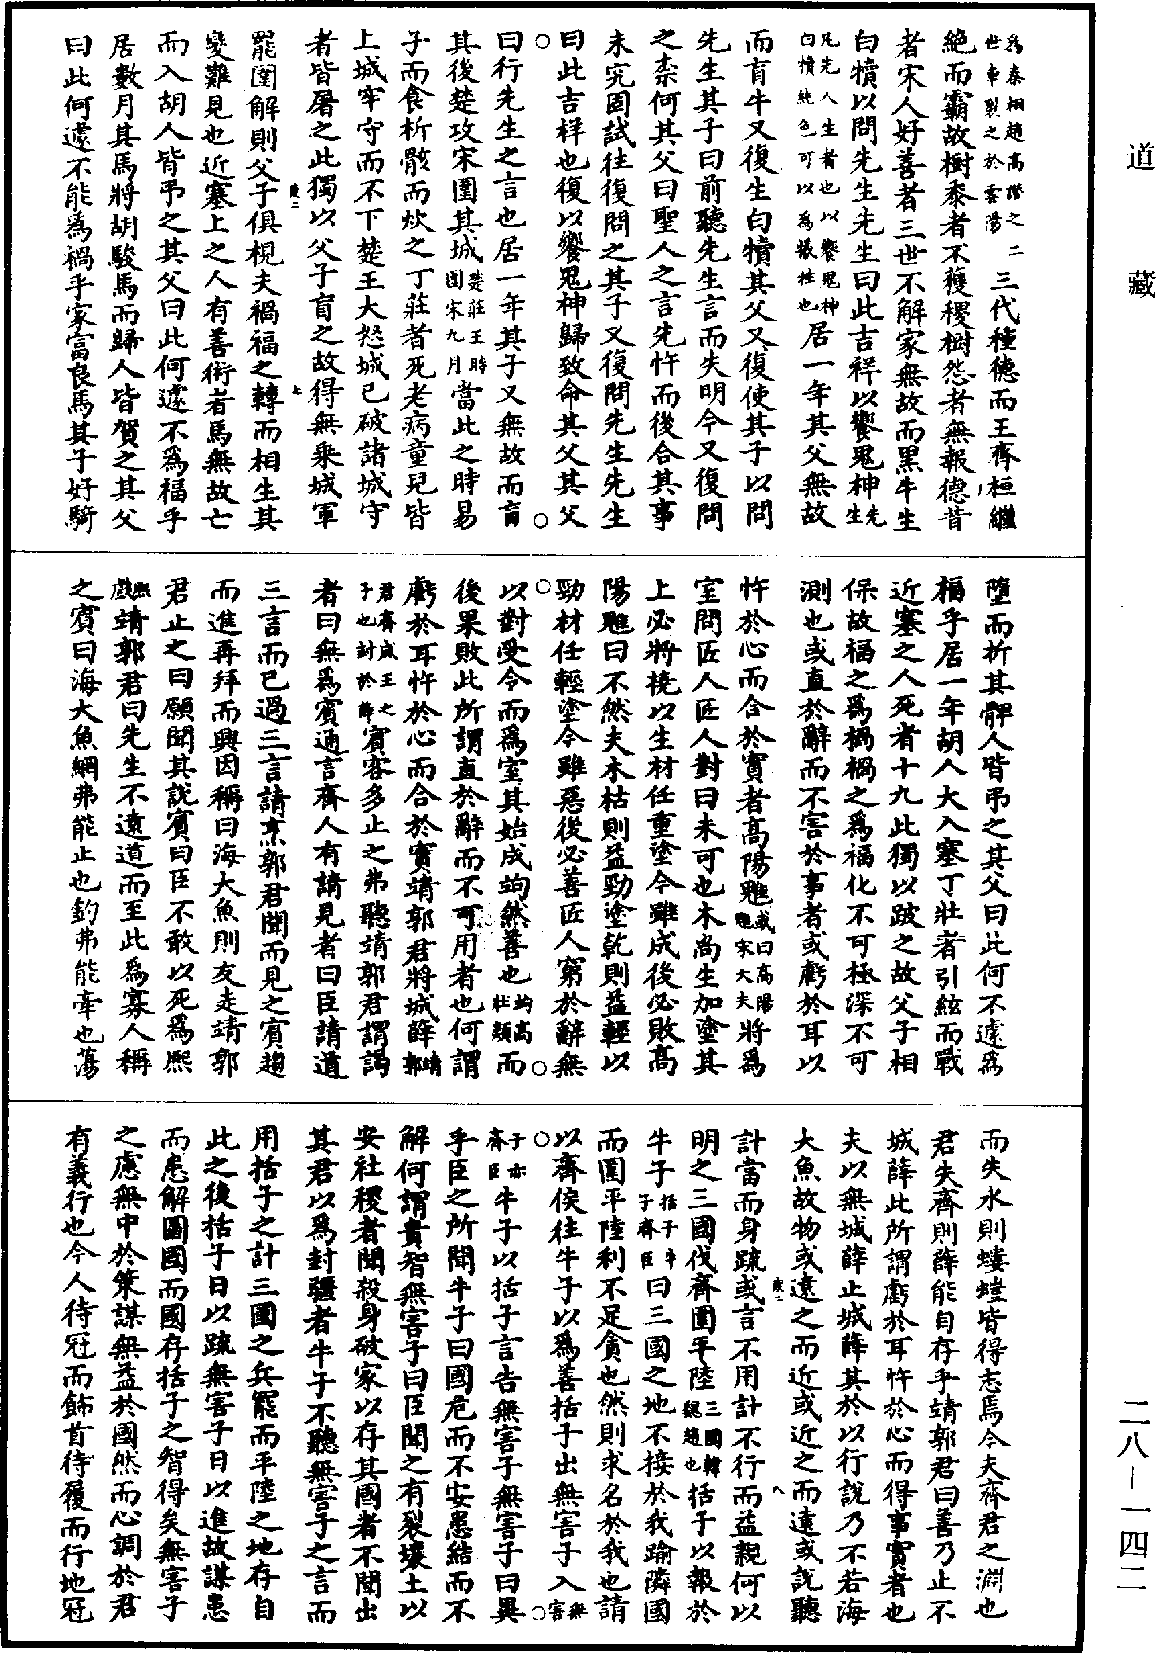 道藏
二八—一四二
爲秦相趙高譖之二世車裂之於雲陽三代種德而王齊桓繼
絕而霸故樹黍者不穫稷樹怨者無報德昔
者宋人好善者三世不解家無故而黑牛生
白犢以問先生先生曰此吉祥以饗鬼神先生
凡先人生者也以饗鬼神白犢純色可以爲犧牲也居一年其父無故
而盲牛又復生白犢其父又復使其子以問
先生其子曰前聽先生言而失明今又復問
之柰何其父曰聖人之言先忤而後合其事
未究固試往復問之其子又復問先生先生
曰此吉祥也復以饗鬼神歸致命其父其父
曰行先生之言也居一年其子又無故而盲
其後楚攻宋圍其城楚莊王時圍宋九月當此之時易
子而食析骸而炊之丁莊者死老病童兒皆
上城牢守而不下楚王大怒城已破諸城守
者皆屠之此獨以父子盲之故得無乘城軍
罷圍解則父子俱視夫禍福之轉而相生其
變難見也近塞上之人有善術者馬無故亡
而入胡人皆弔之其父曰此何遽不爲福乎
居數月其馬將胡駿馬而歸人皆賀之其父
曰此何遽不能爲禍乎家富良馬其子好騎
墮而折其髀人皆弔之其父曰此何不遽爲
福乎居一年胡人大入塞丁壯者引絃而戰
近塞之人死者十九此獨以跛之故父子相
保故福之爲禍禍之爲福化不可極深不可
測也或直於辭而不害於事者或虧於耳以
忤於心而合於實者高陽魋或曰高陽魋宋大夫將爲
室問匠人匠人對曰未可也木尚生加塗其
上必將橈以生材任重塗今雖成後必敗高
陽魋曰不然夫木枯則益勁塗乾則益輕以
勁材任輕塗今雖惡後必善匠人窮於辭無
以對受令而爲室其始成竘然善也竘高壯類而
後果敗此所謂直於辭而不可用者也何謂
虧於耳忤於心而合於實靖郭君將城薛靖郭
君齊威王之子也封於薛賓客多止之弗聽靖郭君謂謁
者曰無爲賓通言齊人有請見者曰臣請道
三言而已過三言請烹郭君聞而見之賓趨
而進再拜而興因稱曰海大魚則反走靖郭
君止之曰願聞其說賓曰臣不敢以死爲熙
熙戲靖郭君曰先生不遠道而至此爲寡人稱
之賓曰海大魚網弗能止也釣弗能牽也蕩
而失水則螻螘皆得志焉今夫齊君之淵也
君失齊則薛能自存乎靖郭君曰善乃止不
城薛此所謂虧於耳忤於心而得事實者也
夫以無城薛止城薛其於以行說乃不若海
大魚故物或遠之而近或近之而遠或說聽
計當而身疏或言不用計不行而益親何以
明之三國伐齊圍平陸三國韓魏趙也括子以報於
牛子括子牛子齊臣曰三國之地不接於我踰隣國
而圍平陸利不足貪也然則求名於我也請
以齊侯往牛子以爲善括子出無害子入無害
子亦齊臣牛子以括子言告無害子無害子曰異
乎臣之所聞牛子曰國危而不安患結而不
解何謂貴智無害子曰臣聞之有裂壤土以
安社稷者聞殺身破家以存其國者不聞出
其君以爲封疆者牛子不聽無害子之言而
用括子之計三國之兵罷而平陸之地存自
此之後括子日以疏無害子日以進故謀患
而患解圖國而國存括子之智得矣無害子
之慮無中於策謀無益於國然而心調於君
有義行也今人待冠而飾首待履而行地冠